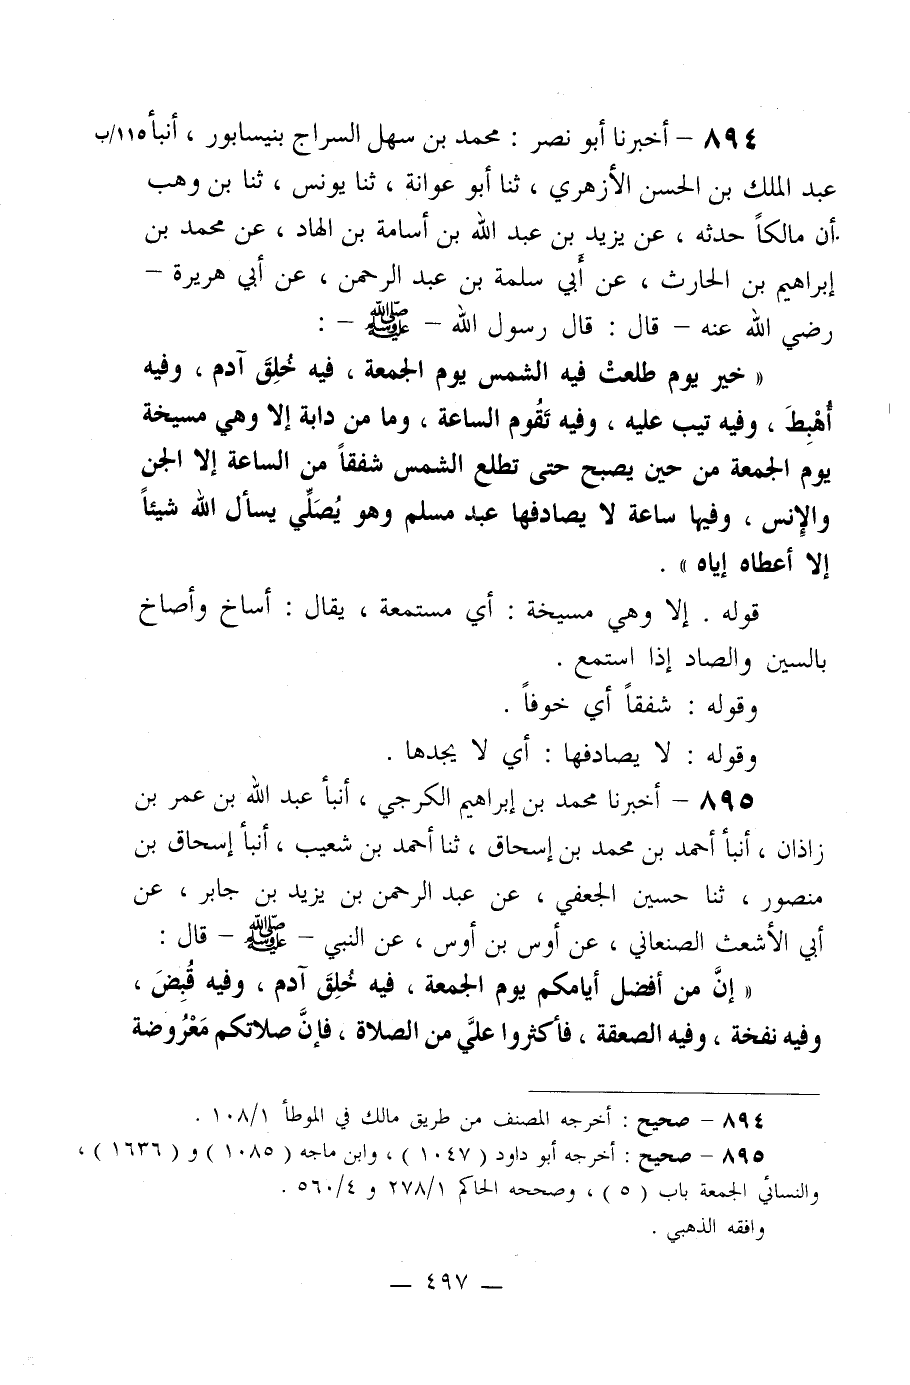 ٨٩٤ – أخبرنا أبو نصر : محمد بن سهل السراج بنيسابور ، أنبأ ١١٥/ب
عبد الملك بن الحسن الأزهري ، ثنا أبو عوانة ، ثنا يونس ، ثنا بن وهب
أن مالكاً حدثه ، عن يزيد بن عبد الله بن أسامة بن الهاد ، عن محمد بن
إبراهيم بن الحارث ، عن أبي سلمة بن عبد الرحمن ، عن أبي هريرة –
رضي الله عنه – قال : قال رسول الله – ﷺ – :
« خير يوم طلعتْ فيه الشمس يوم الجمعة ، فيه خُلِقَ آدم ، وفيه
أُهْبِطَ ، وفيه تيب عليه ، وفيه تَقُوم الساعة ، وما من دابة إلا وهي مسيخة
يوم الجمعة من حين يصبح حتى تطلع الشمس شفقاً من الساعة إلا الجن
والإنس ، وفيها ساعة لا يصادفها عبد مسلم وهو يُصَلِّي يسأل الله شيئاً
إلا أعطاه إياه » .
قوله . إلا وهي مسيخة : أي مستمعة ، يقال : أساخ وأصاخ
بالسين والصاد إذا استمع .
وقوله : شفقاً أي خوفاً .
وقوله : لا يصادفها : أي لا يجدها .
٨٩٥ – أخبرنا محمد بن إبراهيم الكرجي ، أنبأ عبد الله بن عمر بن
زاذان ، أنبأ أحمد بن محمد بن إسحاق ، ثنا أحمد بن شعيب ، أنبأ إسحاق بن
منصور ، ثنا حسين الجعفي ، عن عبد الرحمن بن يزيد بن جابر ، عن
أبي الأشعث الصنعاني ، عن أوس بن أوس ، عن النبي – ﷺ – قال :
« إنَّ من أفضل أيامكم يوم الجمعة ، فيه خُلِقَ آدم ، وفيه قُبِضَ ،
وفيه نفخة ، وفيه الصعقة ، فأكثروا عليَّ من الصلاة ، فإنَّ صلاتكم مَعْرُوضة
٨٩٤ – صحيح : أخرجه المصنف من طريق مالك في الموطأ ١٠٨/١ .
٨٩٥ – صحيح : أخرجه أبو داود ( ١٠٤٧ ) ، وابن ماجه ( ١٠٨٥ ) و ( ١٦٣٦ ) ،
والنسائي الجمعة باب ( ٥ ) ، وصححه الحاكم ٢٧٨/١ و ٥٦٠/٤ .
وافقه الذهبي .
— ٤٩٧ —